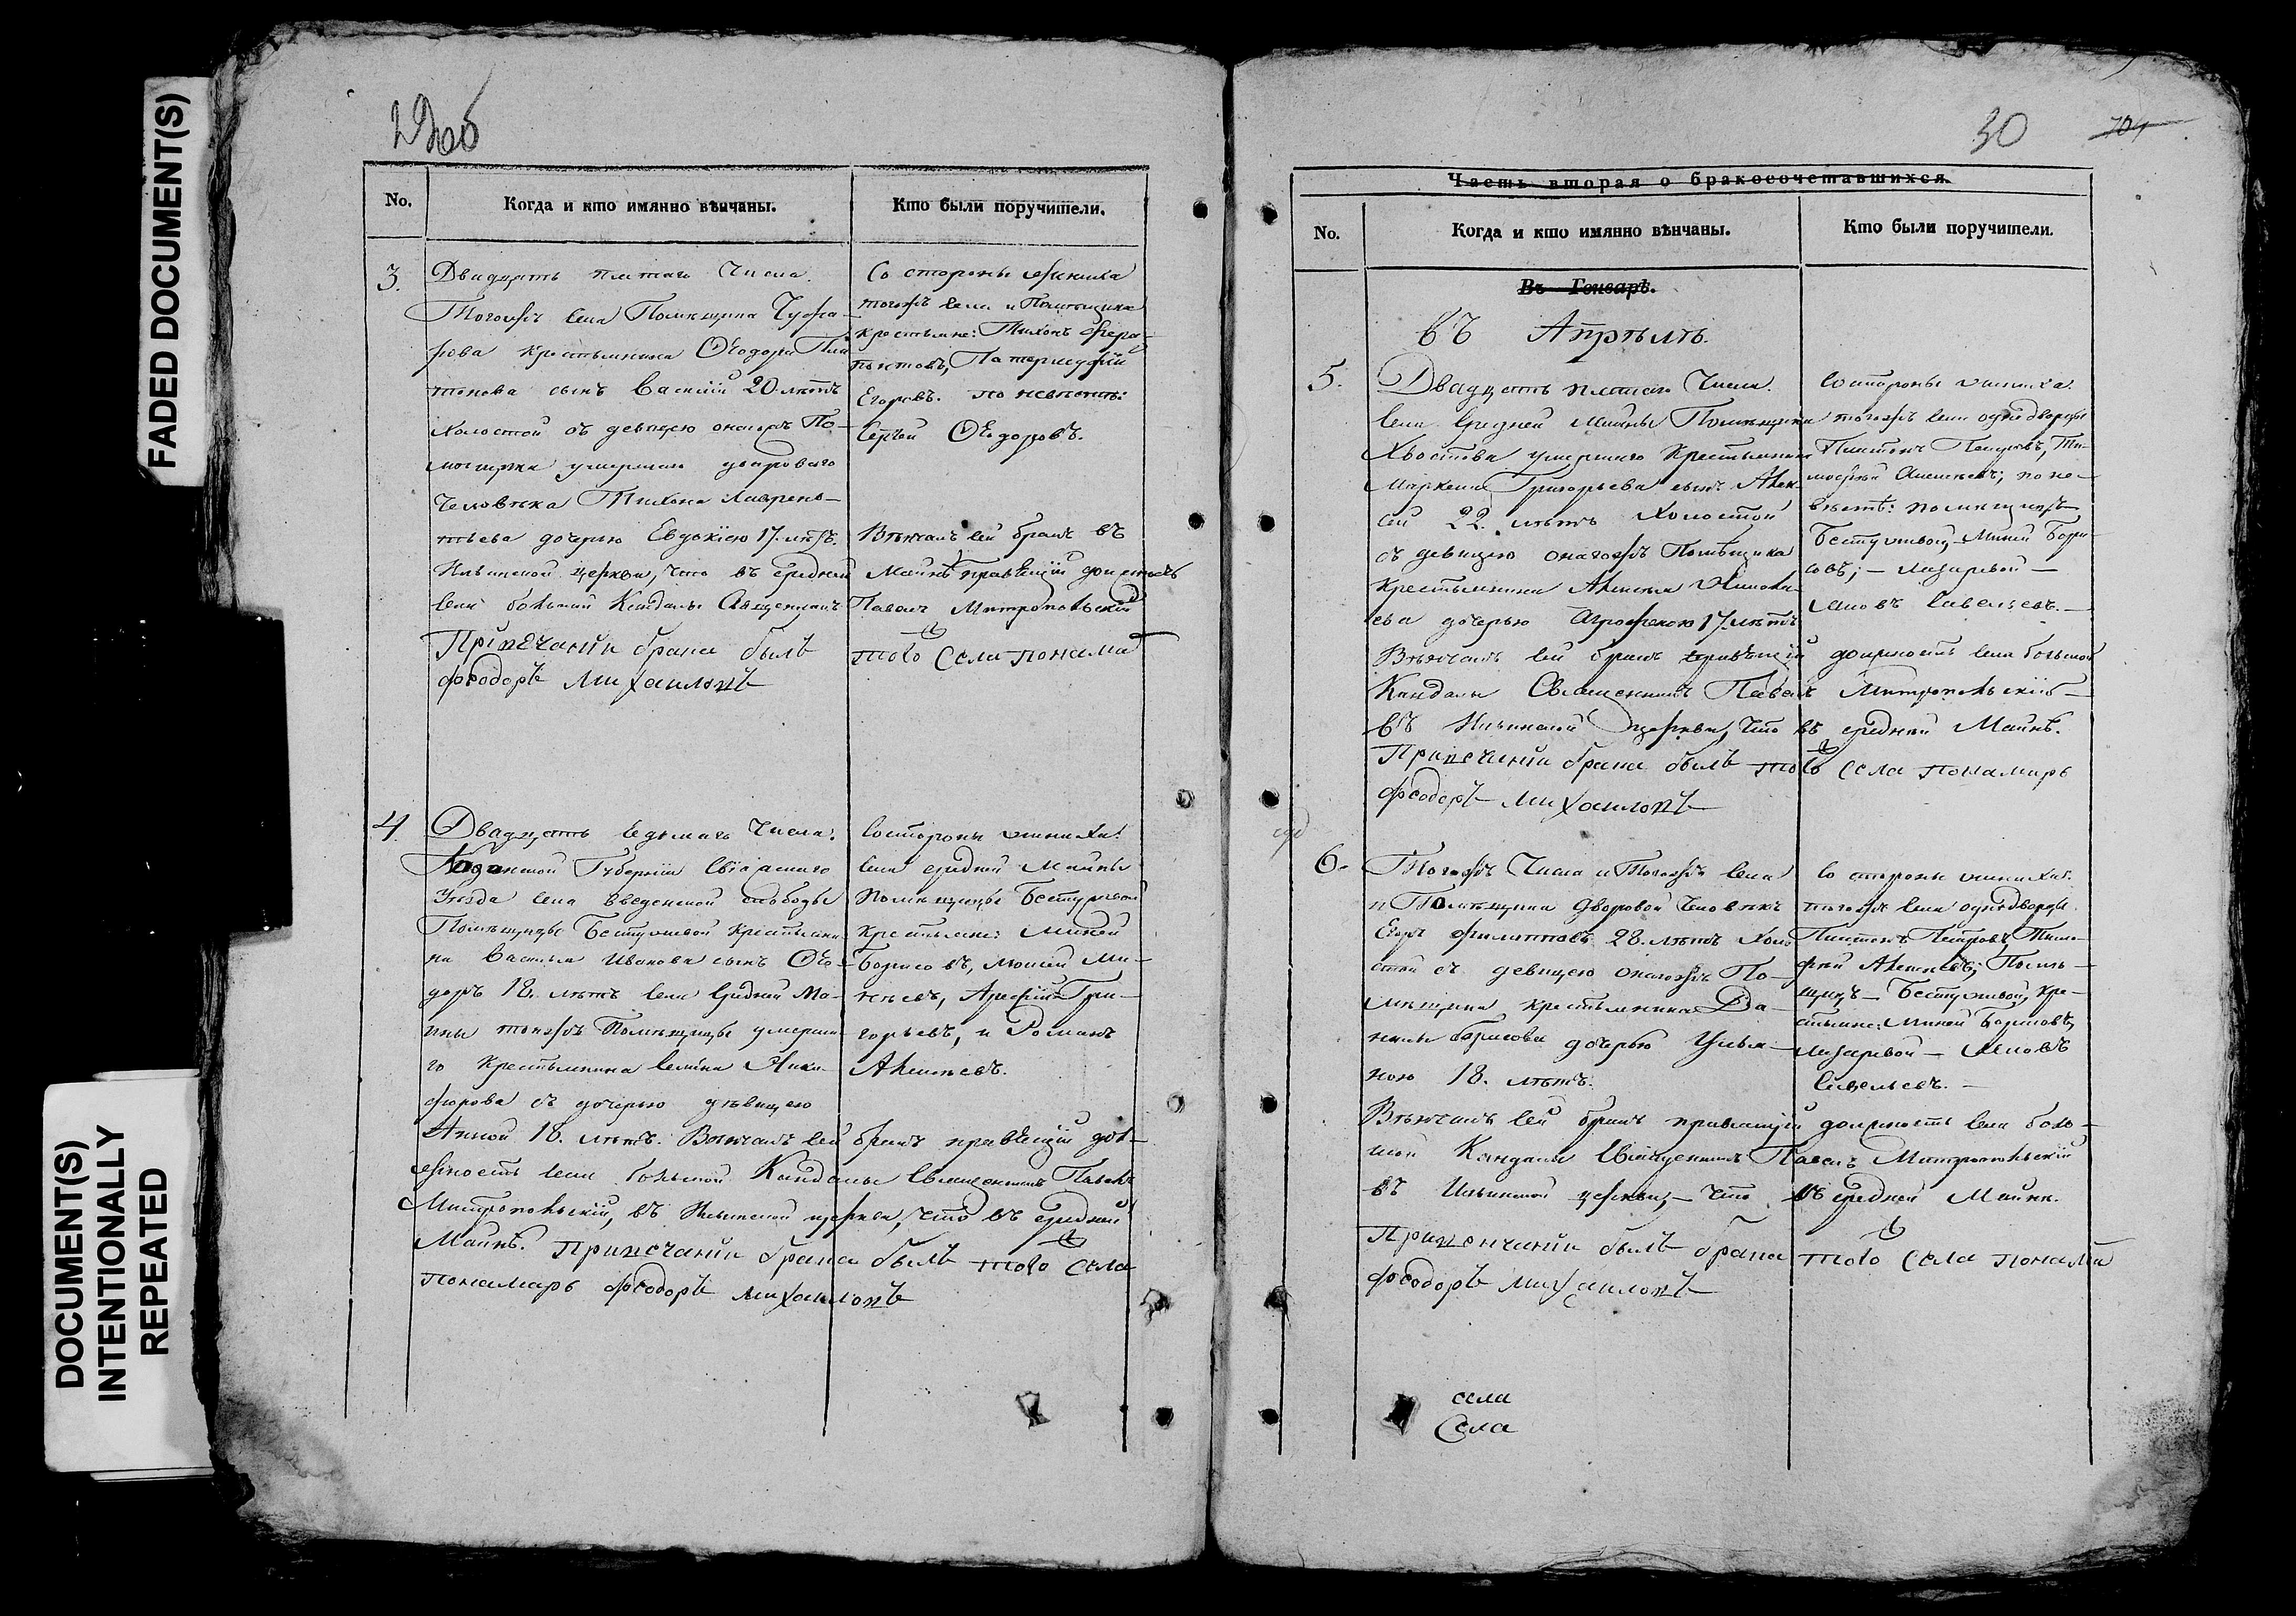 FADED DOCUMENT(S)
DOCUMENT(S)
INTENTIONALLY
REPEATED
29об
No.
Когда и кто имянно вѣнчаны.
Кто были поручители.
3.
Двадцать пятаго Числа.
Тогожъ села Помѣщика
крестьянина Ѳеодора Пла
тонова сынъ Василій 20 лѣтъ
холостой съ девицею онагожъ По-
мѣщика умершаго двороваго
человѣка Тихона Лаврень-
тьева дочерью Евдокіею 17. лѣтъ.
Ильинской церкви, что въ средней
села большой Кандалы Священникъ
При венчаніи брака былъ
Фѣодоръ Михаиловъ
Со стороны жениха
тогожъ села и Помѣщика
крестьяне: Тихонъ
Егоровъ. по невѣстѣ:
Сергѣй Ѳеодоровъ.
Вѣнчалъ сей бракъ въ
Майнѣ правящій должность
Павелъ Митропольскій
того Села понама
4.
Двадцать седьмаго Числа.
Казанской Губерніи Свіяжскаго
Уезда села Введенской слободы
Помѣщицы Бестужевой крестьяни
на Василья Иванова сынъ Ѳео-
доръ 18. лѣтъ села Средней Ма-
йны тоежъ Помѣщицы умерша
го крестьянина Семена Ники-
форова съ дочерью дѣвицею
Анной 18. лѣтъ. Вѣнчалъ сей бракъ правящій дол-
жность села большой Кандалы Священникъ Павелъ
Митропольскій, въ Ильинской церкви, что въ средней
Майнѣ. При венчаніи брака былъ того Села
понамарь Фѣодоръ Михаиловъ
Со стороны жениха:
села средней Майны
Помѣщицы Бестужевой
крестьяне: Миней
Борисовъ, Моисей Ми-
нѣевъ, Арефій Гри-
горьевъ, и Романъ
Алексѣевъ.
30
704
Часть вторая о бракосочетавшихся.
No.
Когда и кто имянно вѣнчаны.
Кто были поручители.
Въ Генварѣ.
Въ Апрѣлѣ.
5.
Двадцать пятаго Числа.
Села Средней Майны Помѣщика
Хвостова умершаго Крестьянина
Григорьева сынъ Алек-
сей 22. лѣтъ холостой
съ девицею онагожъ Помѣщика
крестьянина
дочерью 17. лѣтъ
Вѣнчалъ сей бракъ правящій должность села большой
Кандалы Священникъ Павелъ Митропольскій
въ Ильинской церкви, что въ средней Майнѣ.
При венчаніи брака былъ того Села понамарь
Фѣодоръ Михаиловъ
Со стороны жениха:
тогожъ села однодворцы
Платонъ Петровъ, Ти-
мофѣй Алексѣевъ; по не-
вѣстѣ: помѣщицъ
Бестужевой, Миней Бори-
совъ; — Лазаревой —
Савельевъ. —
6.
Тогожъ Числа и Тогожъ села
и Помѣщика Дворовой Человѣкъ
Егоръ Филиповъ 28. лѣтъ Холо
стой съ девицею онагожъ По-
мѣщика крестьянина Да-
нилы Борисова дочерью Улья-
ною 18. лѣтъ.
Вѣнчалъ сей бракъ правящій должность села боль-
шой Кандалы Священникъ Павелъ Митропольскій
въ Ильинской церкви, — Что въ средней Майнѣ.
При венчаніи былъ брака того Села понама
Фѣодоръ Михаиловъ
Со стороны жениха:
тогожъ села однодворцы
Платонъ Петровъ, Тимо-
фѣй Алексѣевъ; Помѣ-
щицъ — Бестужевой, кре-
стьяне: Миней Борисовъ,
Лазаревой —
Савельевъ. —
села
Села